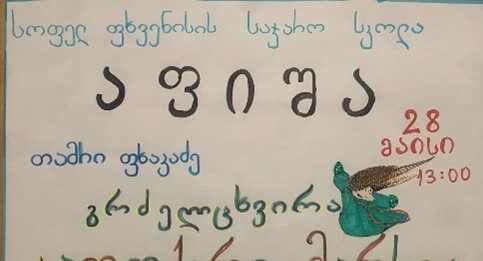 სოფელ ფხვენისის საჯარო სკოლა
აფიშა
28
მაისი
13:00
თამრი ფხაკაძე
გრძელცხვირა